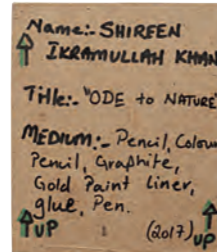 Name:- SHIREEN
IKRAMULLAH KHAN
Title:- "ODE to NATURE"
MEDIUM:- Pencil, Colour
Pencil, Graphite,
Gold Paint Liner,
glue, Pen.
(2017)
UP UP